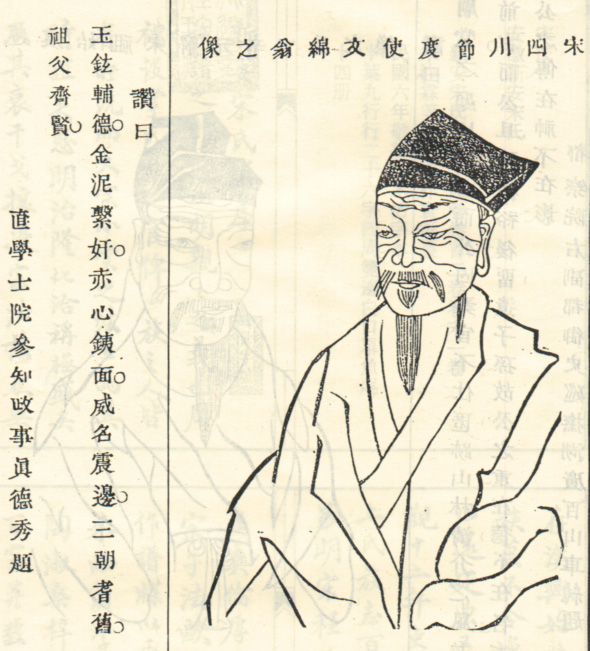 宋四川節度使文綿翁之像
讚曰
玉鉉輔德。金泥繫奸。赤心銕面。威名震邊。三朝耆舊。
祖父齊賢。
直學士院參知政事眞德秀題